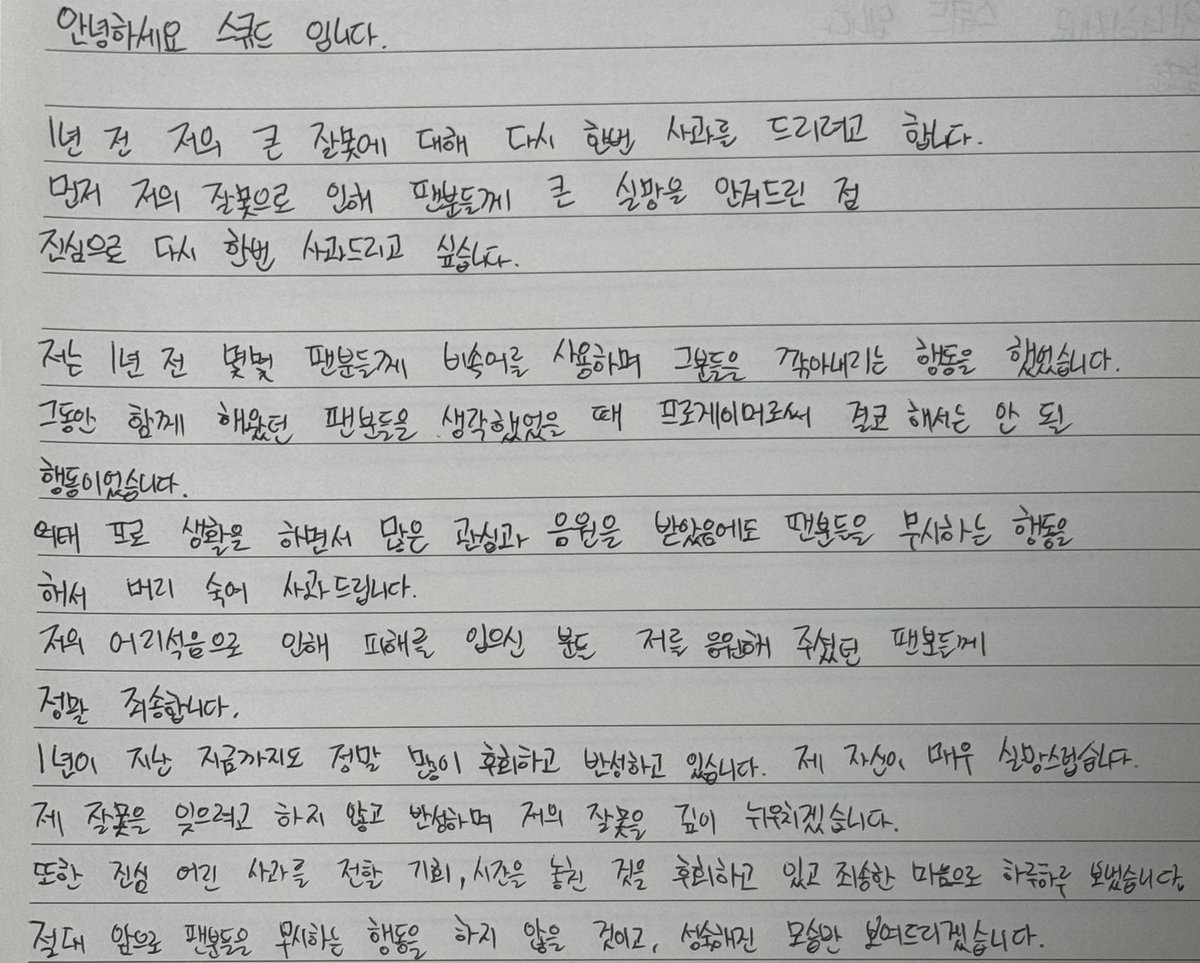 안녕하세요 스큐드 입니다.
1년 전 저의 큰 잘못에 대해 다시 한번 사과를 드리려고 합니다.
먼저 저의 잘못으로 인해 팬분들께 큰 실망을 안겨드린 점
진심으로 다시 한번 사과드리고 싶습니다.
저는 1년 전 몇몇 팬분들께 비속어를 사용하며 그분들을 깎아내리는 행동을 했었습니다.
그동안 함께 해왔던 팬분들을 생각했었을 때 프로게이머로써 결코 해서는 안 될
행동이었습니다.
여태 프로 생활을 하면서 많은 관심과 응원을 받았음에도 팬분들을 무시하는 행동을
해서 머리 숙여 사과드립니다.
저의 어리석음으로 인해 피해를 입으신 분들 저를 응원해 주셨던 팬분들께
정말 죄송합니다.
1년이 지난 지금까지도 정말 많이 후회하고 반성하고 있습니다. 제 자신이 매우 실망스럽습니다.
제 잘못을 잊으려고 하지 않고 반성하며 저의 잘못을 깊이 뉘우치겠습니다.
또한 진심 어린 사과를 전할 기회, 시간을 놓친 것을 후회하고 있고 죄송한 마음으로 하루하루 보냈습니다.
절대 앞으로 팬분들을 무시하는 행동을 하지 않을 것이고, 성숙해진 모습만 보여드리겠습니다.